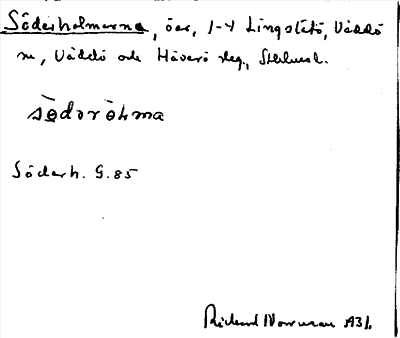 Söderholmarna, öar, 1-4 Lingslätö, Väddö
sn, Väddö och Häverö slg., Sthlms l.
södəròhma
Söderh. G. 85
Rickard Norrman 1931.